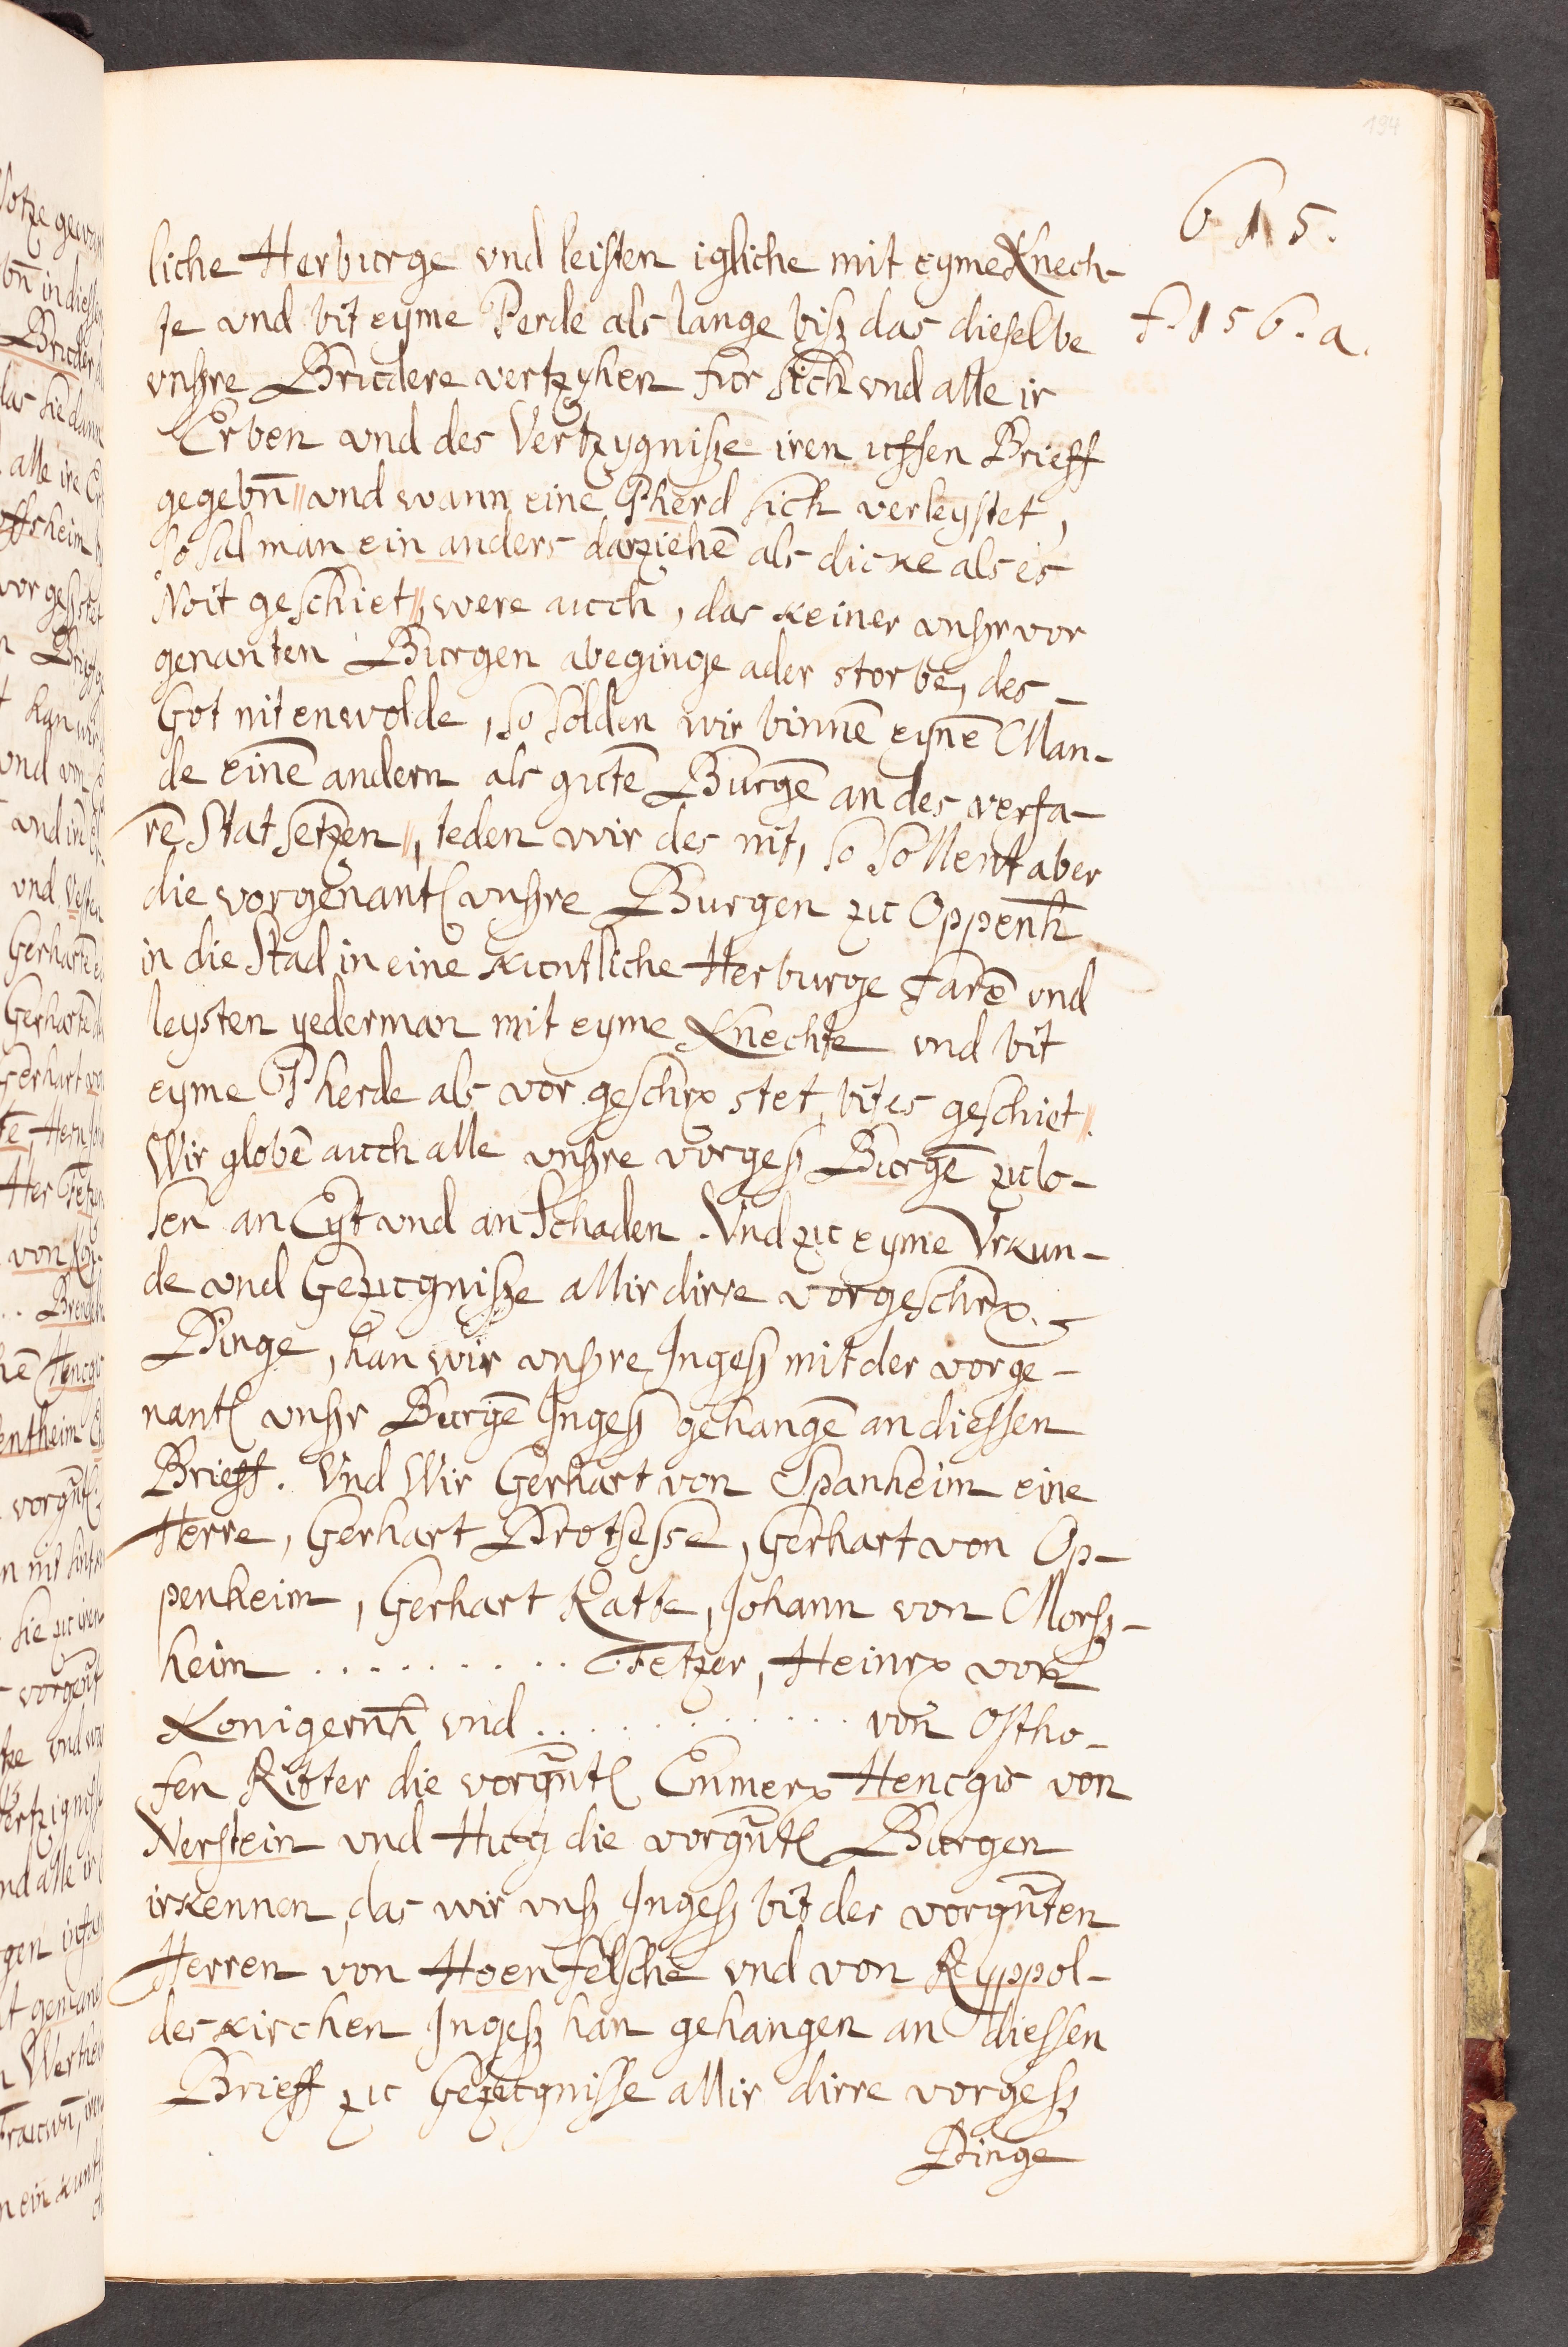 194
615.
f. 156. a.
liche Herburge vnd leisten igliche mit eyme Knech-
te vnd bit eyme Perde als lange biß das dieselbe
vnßre Brudere vertzyhen fur sich vnd alle ir
Erben vnd des Vertzygniße iren uffen Brieff
gegebn̄ // vnd wann eine Pherd sich verleystet,
so sal man ein anders darziehē als dicke als es
Noit geschiet //, were auch, das keiner vnßr vor
genanten Burgen abeginge ader storbe, des -
Got nit enwolde, so solden wir binnē eynē Man-
de einē andern als gutē Burgē an des verfa-
rē Stat setzen //, teden wir des nit, so sollent aber
die vorgenant vnßre Burgen zu Oppenh̄
in die Stad in eine kuntliche Herburge farē vnd
leysten yederman mit eyme Knechte vnd bit
eyme Pherde als vor geschrx stet, bit es geschiet //.
Wir globē auch alle vnßre vorgeß Burgē zu lo-
sen an Eyt vnd an Schaden. Vnd zu eyme Vrkun-
de vnd Gezugniße allir dirre vorgeschrx. -
Dinge, han wir vnßre Ingeß mit der vorge-
nant vnßr Burgē Ingeß gehangē an diessen
Brieff. Vnd Wir Gerhart von Spanheim eine
Herre, Gerhart Drotsesse, Gerhart von Op-
penheim, Gerhart Katte, Johann von Morß-
heim .......... Fetzer, Heinrx von
Konigernh̄ vnd ............. von Ostho-
fen Ritter die vorgn̄t Emmerx Hencgis von
Nerstein vnd Hug die vorgn̄t Burgen
irkennen, das wir vnß Ingeß bit der vorgn̄ten
Herren von Hoenfelsche vnd von Ryppol-
deskirchen Ingeß han gehangen an diessen
Brieff zu Gezugnisse allir dirre vorgeß
Dinge